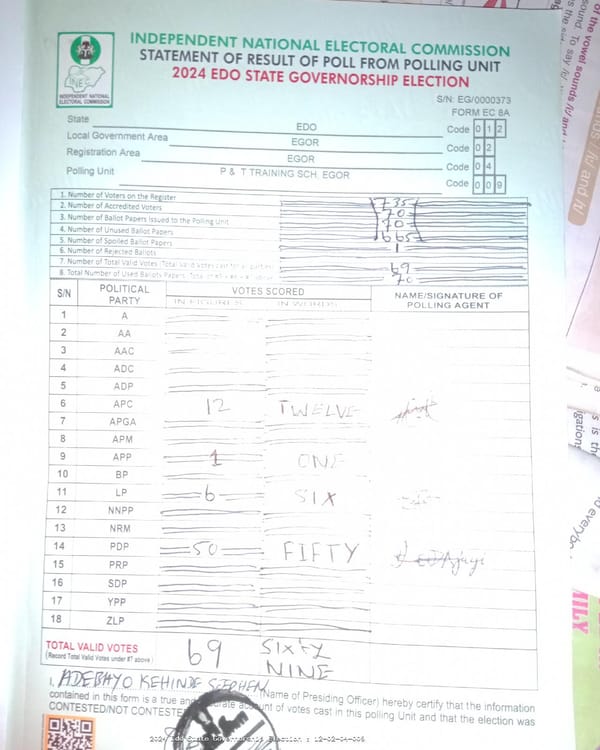 INDEPENDENT NATIONAL ELECTORAL COMMISSION
STATEMENT OF RESULT OF POLL FROM POLLING UNIT
2024 EDO STATE GOVERNORSHIP ELECTION
INEC
INDEPENDENT NATIONAL
ELECTORAL COMMISSION
S/N: EG/0000373
FORM EC 8A
State EDO Code 0 1 2
Local Government Area EGOR Code 0 2
Registration Area EGOR Code 0 4
Polling Unit P & T TRAINING SCH. EGOR Code 0 0 9
1. Number of Voters on the Register 735
2. Number of Accredited Voters 70
3. Number of Ballot Papers Issued to the Polling Unit 70
4. Number of Unused Ballot Papers 665
5. Number of Spoiled Ballot Papers
6. Number of Rejected Ballots 1
7. Number of Total Valid Votes (Total Valid Votes cast for all parties) 69
8. Total Number of Used Ballots Papers 70
S/N POLITICAL PARTY VOTES SCORED NAME/SIGNATURE OF POLLING AGENT
IN FIGURES IN WORDS
1 A
2 AA
3 AAC
4 ADC
5 ADP
6 APC 12 TWELVE
7 APGA
8 APM
9 APP 1 ONE
10 BP
11 LP 6 SIX
12 NNPP
13 NRM
14 PDP 50 FIFTY
15 PRP
16 SDP
17 YPP
18 ZLP
TOTAL VALID VOTES 69 SIXTY NINE
(Record Total Valid Votes under #7 above)
I, ADEBAYO KEHINDE STEPHEN (Name of Presiding Officer) hereby certify that the information
contained in this form is a true and account of votes cast in this polling Unit and that the election was
CONTESTED/NOT CONTESTED
2024 Edo State Governorship Election : 12-02-04-009
of the vowel sounds /i/ and
sound. To say /i/
/i/ and /i/
is the
igations
everybo